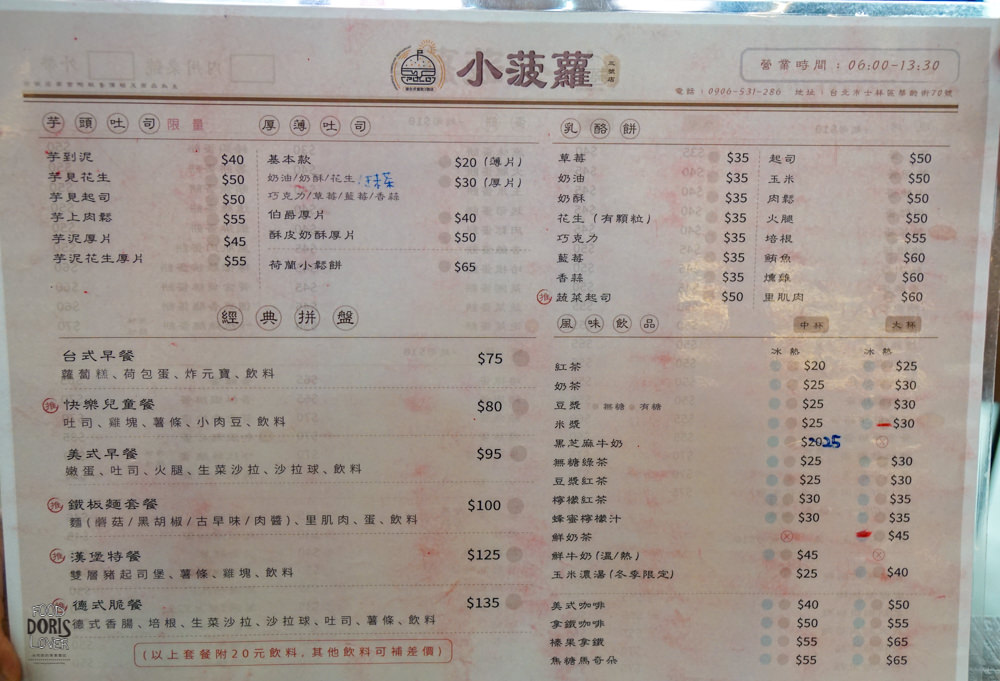 小菠蘿
三號店
POLO
營業時間：06:00-13:30
電話：0906-531-286 地址：台北市士林區華齡街70號
芋頭吐司 限量
芋到泥 $40
芋見花生 $50
芋見起司 $50
芋上肉鬆 $55
芋泥厚片 $45
芋泥花生厚片 $55
厚薄吐司
基本款 $20 (薄片)
奶油/奶酥/花生 抹茶 $30 (厚片)
巧克力/草莓/藍莓/香蒜
伯爵厚片 $40
酥皮奶酥厚片 $50
荷蘭小鬆餅 $65
乳酪餅
草莓 $35
奶油 $35
奶酥 $35
花生 (有顆粒) $35
巧克力 $35
藍莓 $35
香蒜 $35
推 蔬菜起司 $50
起司 $50
玉米 $50
肉鬆 $50
火腿 $50
培根 $55
鮪魚 $60
燻雞 $60
里肌肉 $60
經典拼盤
台式早餐 $75
蘿蔔糕、荷包蛋、炸元寶、飲料
推 快樂兒童餐 $80
吐司、雞塊、薯條、小肉豆、飲料
美式早餐 $95
嫩蛋、吐司、火腿、生菜沙拉、沙拉球、飲料
推 鐵板麵套餐 $100
麵(蘑菇/黑胡椒/古早味/肉醬)、里肌肉、蛋、飲料
推 漢堡特餐 $125
雙層豬起司堡、薯條、雞塊、飲料
德式脆餐 $135
德式香腸、培根、生菜沙拉、沙拉球、吐司、薯條、飲料
(以上套餐附20元飲料，其他飲料可補差價)
風味飲品 中杯 大杯
冰 熱 冰 熱
紅茶 $20 $25
奶茶 $25 $30
豆漿 無糖 有糖 $25 $30
米漿 $25 $30
黑芝麻牛奶 $20 25
無糖綠茶 $25 $30
豆漿紅茶 $25 $30
檸檬紅茶 $30 $35
蜂蜜檸檬汁 $30 $35
鮮奶茶 $45
鮮牛奶(溫/熱) $45
玉米濃湯(冬季限定) $25 $40
美式咖啡 $40 $50
拿鐵咖啡 $50 $55
榛果拿鐵 $55 $65
焦糖馬奇朵 $55 $65
FOOD
DORIS
LOVER